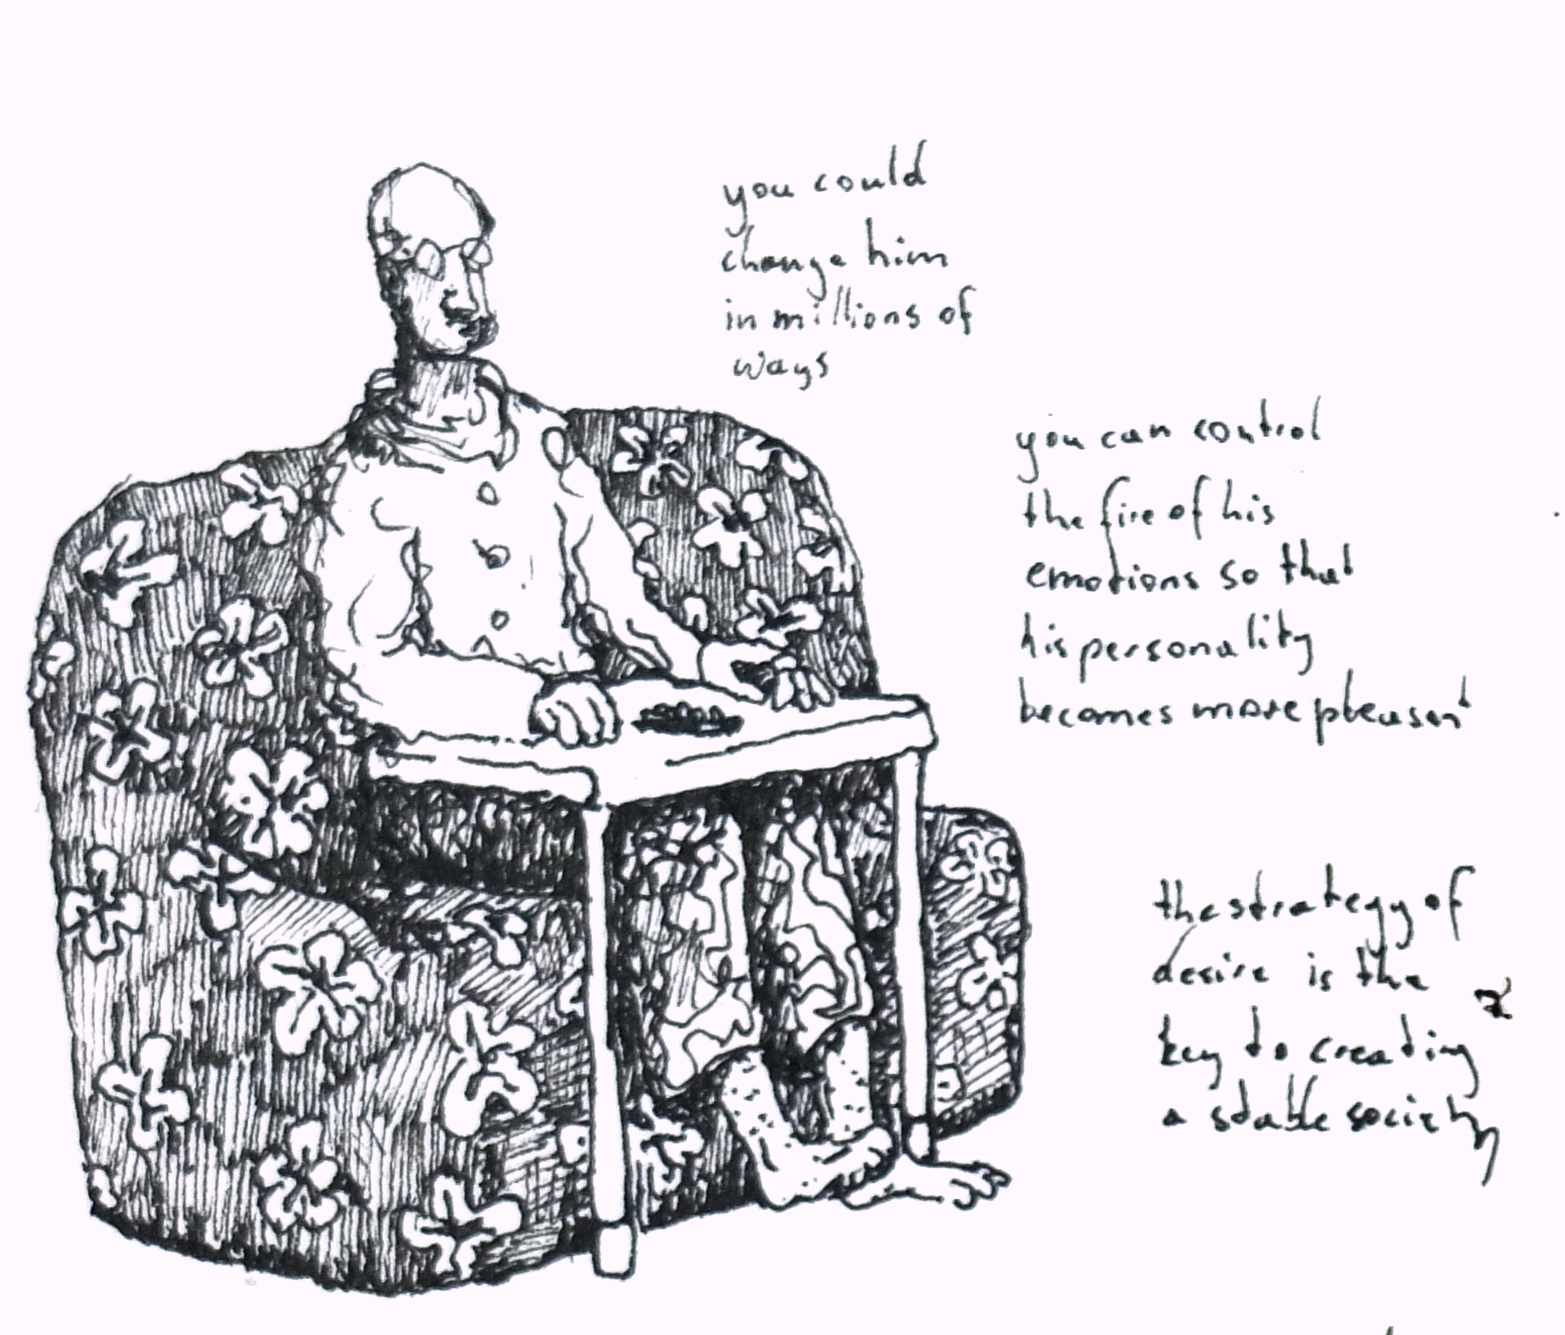 you could
change him
in millions of
ways
you can control
the fire of his
emotions so that
his personality
becomes more pleasant
the strategy of
desire is the
key to creating
a stable society